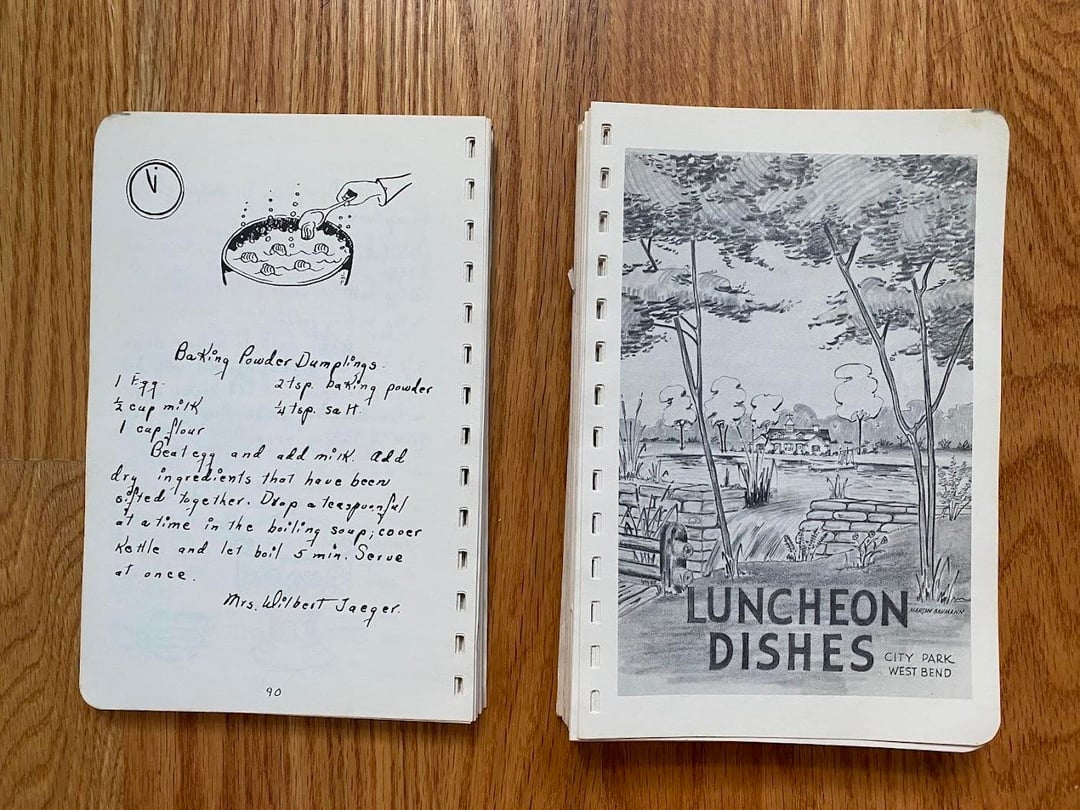 Baking Powder Dumplings.
1 Egg. 2 tsp. baking powder
½ cup milk ¼ tsp. salt.
1 cup flour
Beat egg and add milk. Add
dry ingredients that have been
sifted together. Drop a teaspoonful
at a time in the boiling soup; cover
kettle and let boil 5 min. Serve
at once.
Mrs. Wilbert Jaeger.
90
LUNCHEON
DISHES
MARTIN BAUMANN
CITY PARK
WEST BEND